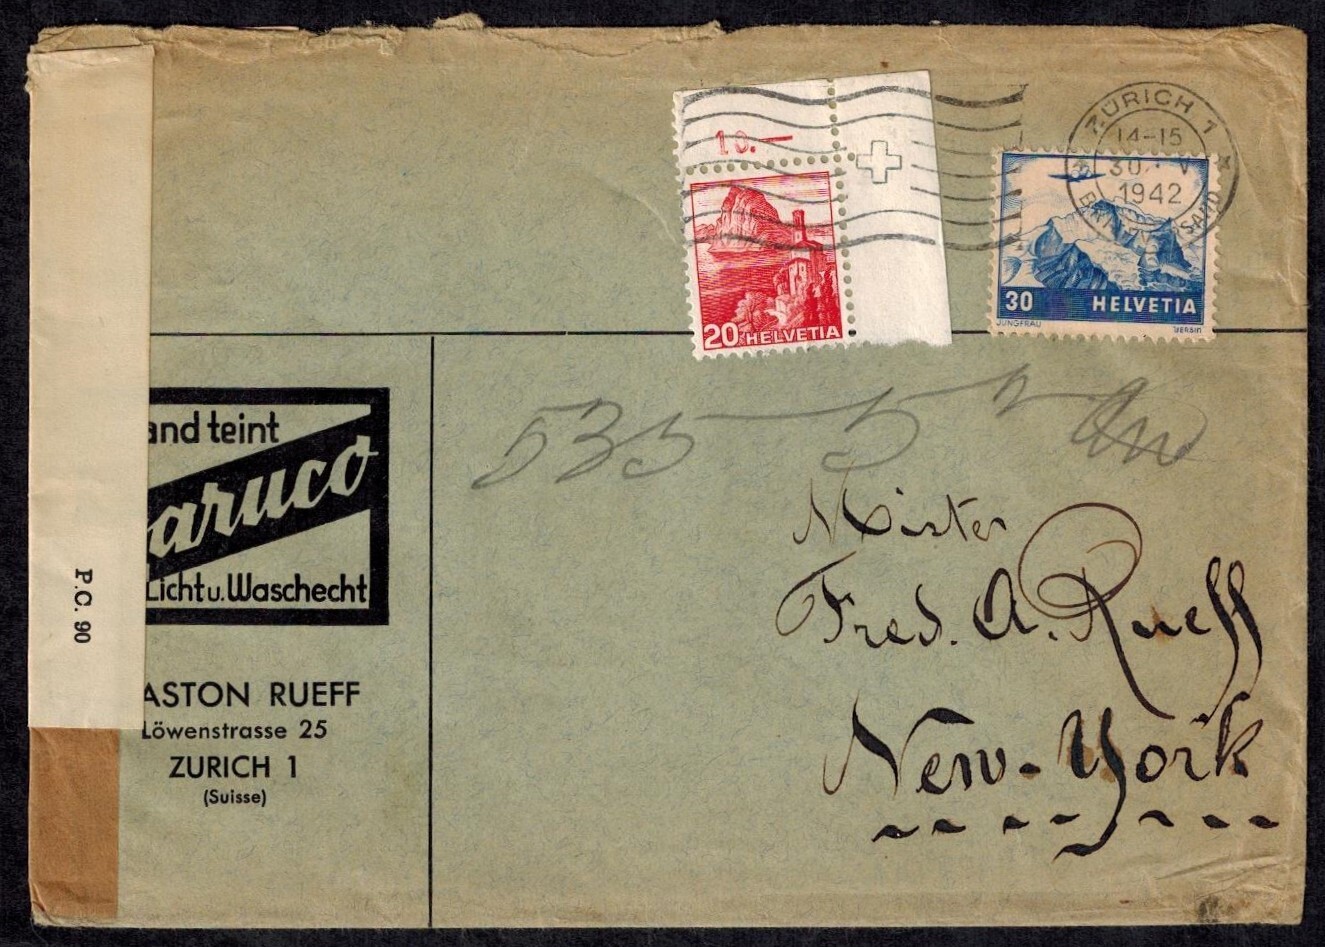 10.—
20 HELVETIA
ZÜRICH 1
14-15
30. V
1942
30 HELVETIA
JUNGFRAU
535 5
and teint
aruco
Licht u. Waschecht
P.C. 90
ASTON RUEFF
Löwenstrasse 25
ZURICH 1
(Suisse)
Mister
Fred. A. Rueff
New-York